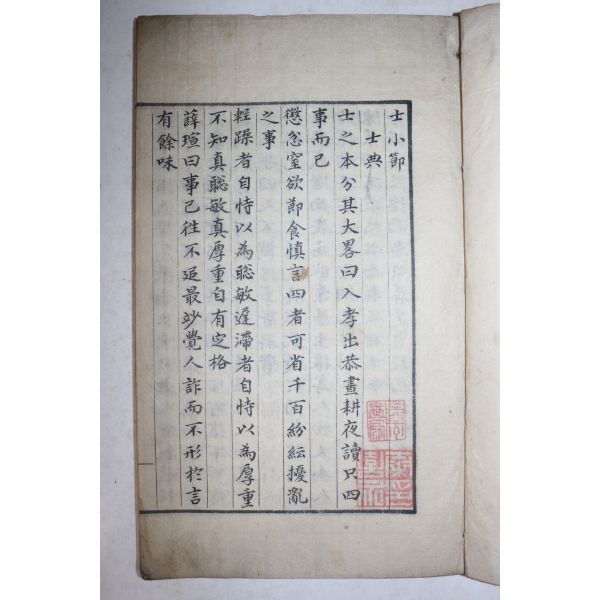 士小節
士典
士之本分其大畧曰入孝出恭晝耕夜讀只四
事而已
懲忿窒欲節食慎言四者可省千百紛紜擾亂
之事
輕躁者自恃以為聡敏遲滯者自恃以為厚重
不知真聡敏真厚重自有定格
薛瑄曰事已徃不追最妙覺人詐而不形於言
有餘味